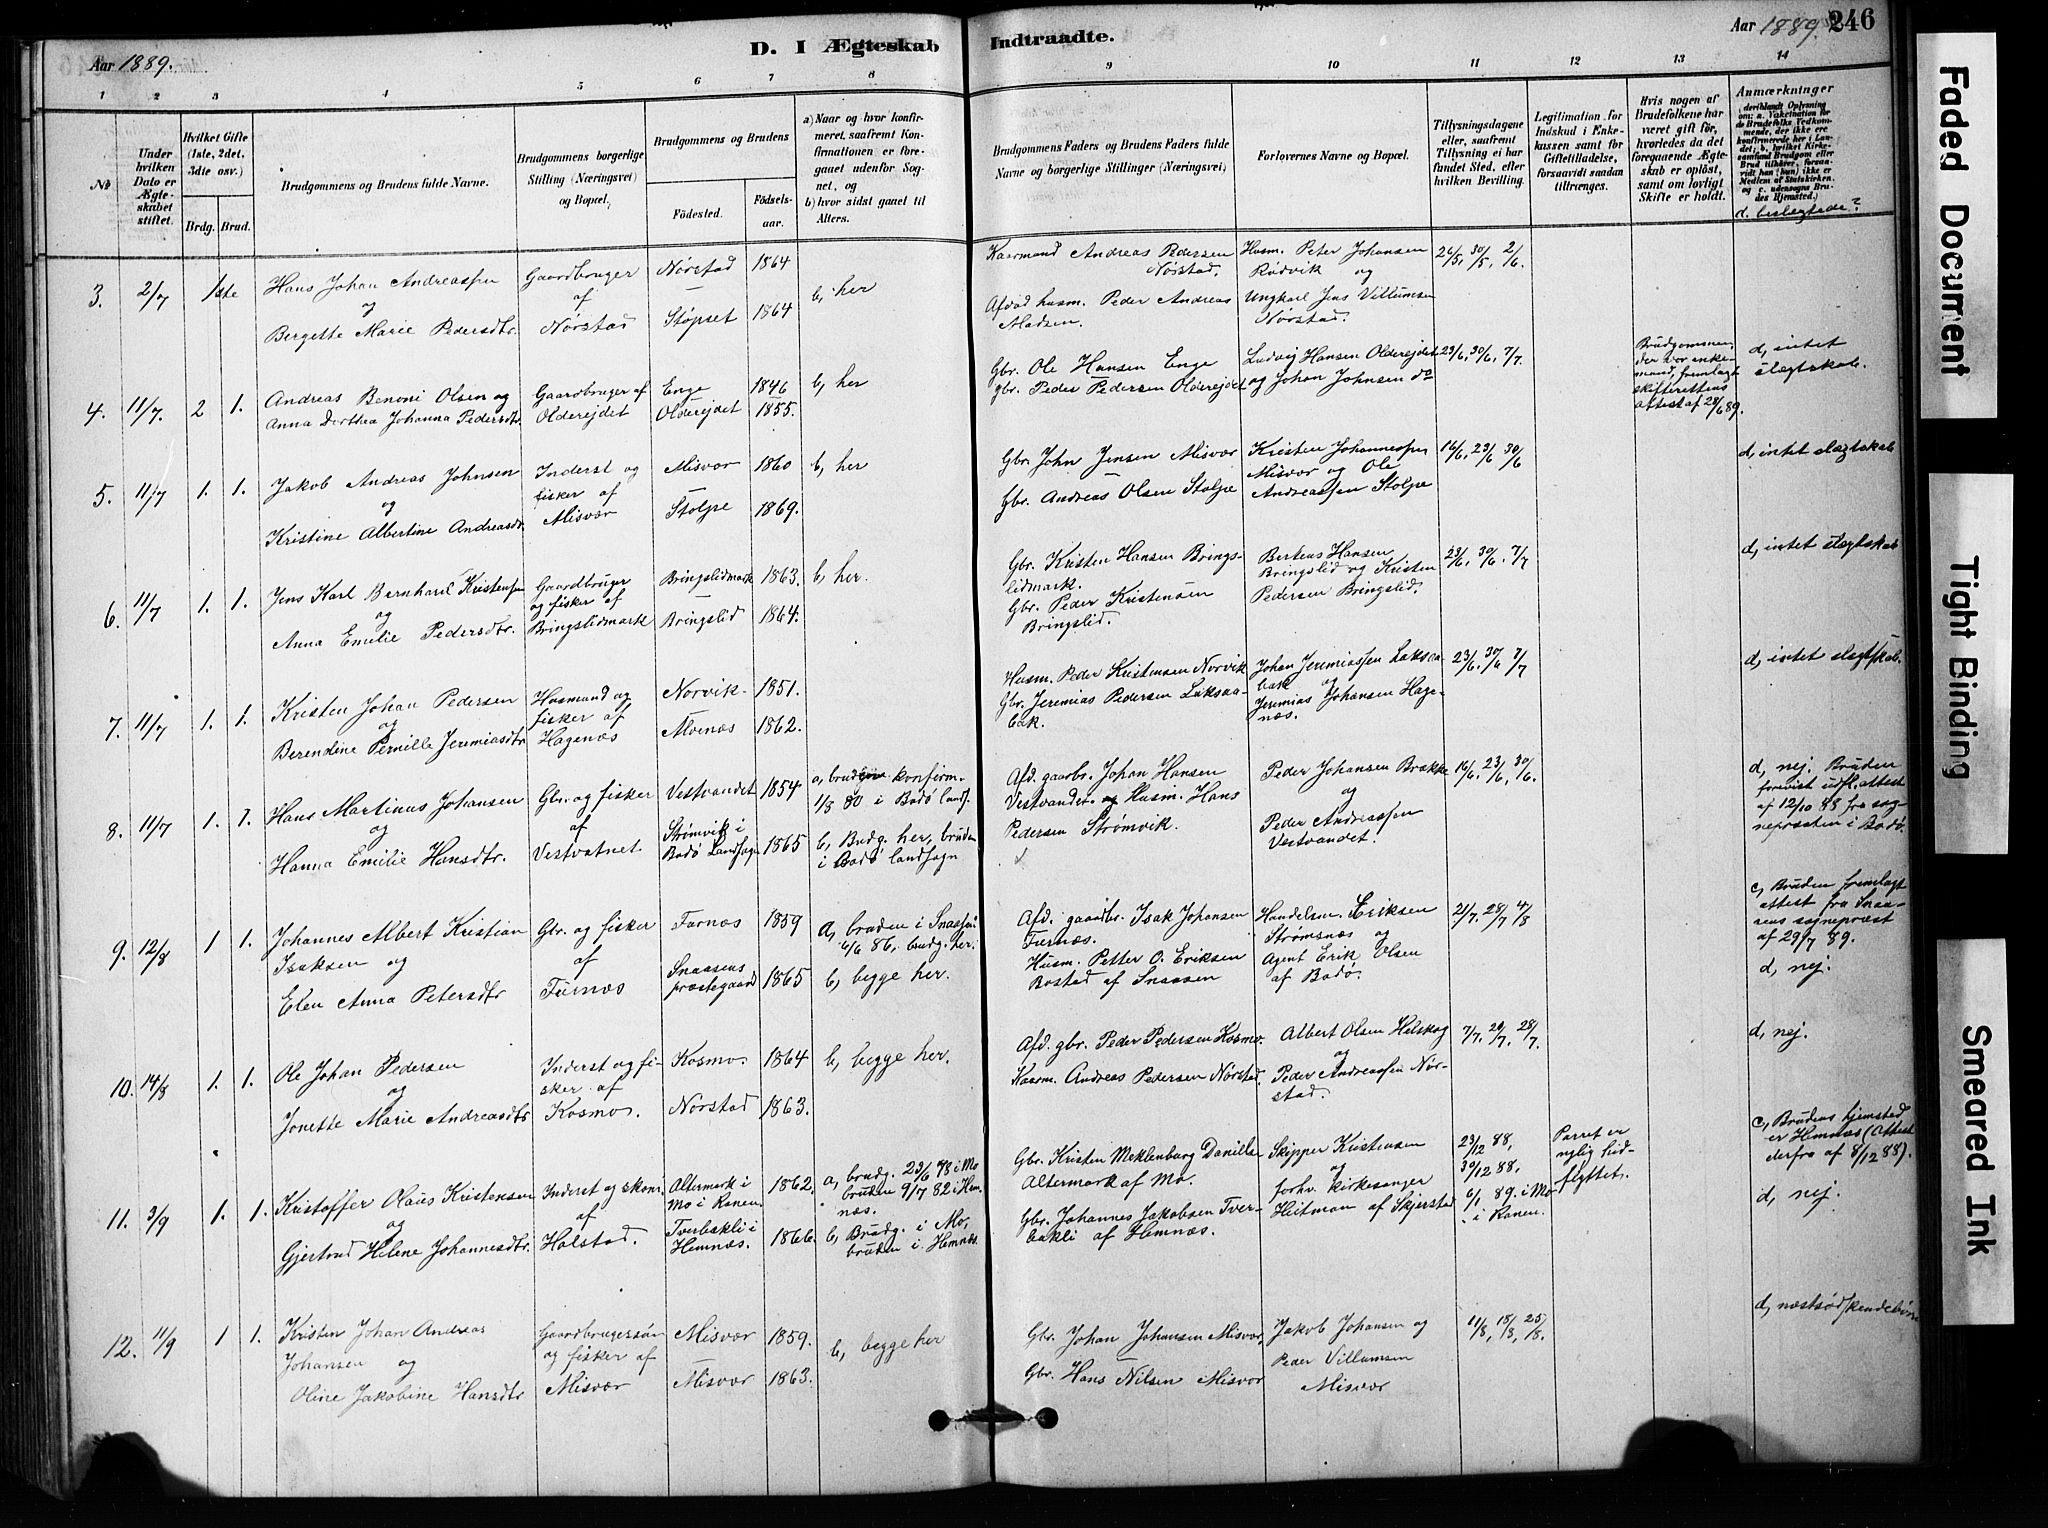 D. I Ægteskab Indtraadte.
Aar 1889.
Aar 1889.
246
1 2 3 4 5 6 7 8 9 10 11 12 13 14
No
Under hvilken Dato er Ægteskabet stiftet.
Hvilket Gifte (1ste, 2det, 3dte osv.)
Brdg. Brud.
Brudgommens og Brudens fulde Navne.
Brudgommens borgerlige Stilling (Næringsvei) og Bopæl.
Brudgommens og Brudens
Fødested.
Fødselsaar.
a) Naar og hvor konfirmeret, saafremt Konfirmationen er foregaaet udenfor Sognet, og
b) hvor sidst gaaet til Alters.
Brudgommens Faders og Brudens Faders fulde Navne og borgerlige Stillinger (Næringsvei)
Forlovernes Navne og Bopæl.
Tillysningsdagene eller, saafremt Tillysning ei har fundet Sted, efter hvilken Bevilling.
Legitimation for Indskud i Enkekassen samt for Giftetilladelse, forsaavidt saadan tiltrænges.
Hvis nogen af Brudefolkene har været gift før, hvorledes da det foregaaende Ægteskab er opløst, samt om lovligt Skifte er holdt.
Anmærkninger
(deriblandt Oplysning om: a. Vaccination for de Brudefolks Vedkommende, der ikke ere konfirmerede her i Landet; b. hvilket Kirkesamfund Brudgom eller Brud tilhører, forsaavidt han (hun) ikke er Medlem af Statskirken, og c. udensogns Brudes Hjemsted.)
d. beslegtede?
3. 2/7 1ste
Hans Johan Andreassen
og
Bergette Marie Pedersdtr.
Gaardbruger
af
Nørstad
Nørstad 1864
Støpset 1864
b, her
Kaarmand Andreas Pedersen
Nørstad.
Afdød husm. Peder Andreas
Madsen.
Husm. Peter Johansen
Rødvik og
Ungkarl Jens Villumsen
Nørstad.
26/5, 30/5, 2/6.
4. 11/7. 2 1.
Andreas Benoni Olsen og
Anna Dorthea Johanna Pedersdtr.
Gaardbruger af
Olderejdet
Enge 1846
Olderejdet 1855.
b, her
Gbr. Ole Hansen Enge
Gbr. Peder Pedersen Olderejdet
Ludvig Hansen Olderejdet
og Johan Johnsen do
23/6, 30/6, 7/7.
Brudgommen,
der var enkemand, fremlagt
skifterettens
attest af 28/6 89.
d, intet
slegtskab.
5. 11/7 1. 1.
Jakob Andreas Johnsen
og
Kristine Albertine Andreasdtr.
Inderst og
fisker af
Misvær
Misvær 1860
Stolpe 1869.
b, her
Gbr. John Jensen Misvær
Gbr. Andreas Olsen Stolpe
Kristen Johannessen
Misvær og Ole
Andreassen Stolpe
16/6, 23/6 30/6
d, intet slegtskab
6. 11/7 1. 1.
Jens Karl Bernhard Kristensen
og
Anna Emilie Pedersdtr.
Gaardbruger
og fisker af
Bringslidmark
Bringslidmark 1863.
Bringslid 1864.
b, her.
Gbr. Kristen Hansen Bringslidmark.
Gbr. Peder Kristensen
Bringslid.
Berteus Hansen
Bringslid og Kristen
Pedersen Bringslid.
23/6, 30/6. 7/7
d, intet slegtskab
7. 11/7 1. 1.
Kristen Johan Pedersen
og
Berendine Pernille Jeremiasdtr
Husmand og
fisker af
Hagenæs
Norvik 1851.
Alvenæs 1862.
Husm. Peder Kristensen Norvik
Gbr. Jeremias Pedersen Laksaabak.
Johan Jeremiassen Laksaabak og
Jeremias Johansen Hagenæs.
23/6. 30/6 7/7
d, intet slegtskab.
8. 11/7 1. 1.
Hans Martinus Johansen
og
Hanna Emilie Hansdtr.
Gbr. og fisker
af
Vestvatnet.
Vestvandet 1854
Strømvik i
Bodø Landsogn 1865
a, bruden konfirm.
1/8 80 i Bodø lands.
b, Budg. her, bruden
i Bodø landsogn
Afd. gaarbr. Johan Hansen
Vestvandet. og Husm. Hans
Pedersen Strømvik.
Peder Johansen Brække
og
Peder Andreassen
Vestvandet.
16/6, 23/6, 30/6.
d, nej. Bruden
forevist udfl. attest
af 12/10 88 fra sognepræsten i Bodø.
9. 12/8 1 1.
Johannes Albert Kristian
Isaksen og
Elen Anna Petersdtr
Gbr. og fisker
af
Furnæs
Furnæs 1859
Snaasens
præstegaard 1865
a, bruden i Snaasen
6/6 86, budg. her.
b, begge her.
Afd. gaardbr. Isak Johansen
Furnæs.
Husm. Petter O. Eriksen
Bostad af Snaasen
Handelsm. Eriksen
Strømsnæs og
Agent Erik Olsen
af Bodø.
21/7. 28/7 4/8
c, Bruden fremlagt
attest fra Snaasens sognepræst
af 29/7 89.
d, nej.
10. 14/8 1. 1.
Ole Johan Pedersen
og
Jonette Marie Andreasdtr
Inderst og fisker af
Kosmo.
Kosmo. 1864
Nørstad 1863.
b, begge her.
Afd. gbr. Peder Pedersen Kosmo.
Kaarm. Andreas Pedersen Nørstad
Albert Olsen Helskog
og
Peder Andreassen Nørstad.
7/7, 20/7, 28/7.
d, nej.
11. 3/9 1. 1.
Kristoffer Olaus Kristensen
og
Gjertrud Helene Johannesdtr.
Inderst og skom.
af
Halstad.
Altermark i
Mo i Ranen 1862.
Tverbakli i
Hemnæs. 1866.
a, brudg. 23/6 78 i Mo
bruden 9/7 82 i Hemnæs.
b, Brudg. i Mo,
bruden i Hemnæs.
Gbr. Kristen Meklenburg Danilla
Altermark af Mo.
Gbr. Johannes Jakobsen Tverbakli af Hemnæs.
Skipper Kristensen
og
forhv. kirkesanger
Heitman af Skjerstad
23/12 88,
30/12 88,
6/1 89. i Mo
i Ranen.
Parret er
nylig indflyttet.
c, Brudens hjemsted
er Hemnæs (Attest
derfra af 8/12 88).
d, nej.
12. 11/9 1 1.
Kristen Johan Andreas
Johansen og
Oline Jakobine Hansdtr
Gaardbrugersøn
og fisker af
Misvær
Misvær 1859.
Misvær 1863.
b, begge her
Gbr. Johan Johansen Misvær,
Gbr. Hans Nilsen Misvær
Jakob Johansen og
Peder Villumsen
Misvær
11/8, 18/8, 25/8.
d, næstsødskendebørn
Faded Document
Tight Binding
Smeared Ink